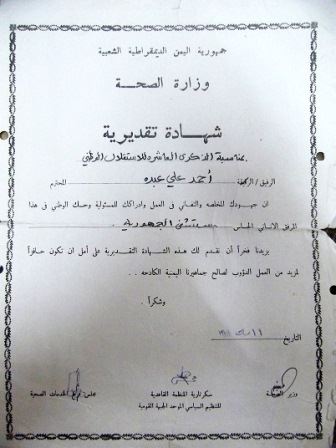 جمهورية اليمن الديمقراطية الشعبية
وزارة الصحــة
شهادة تقديرية
بمناسبة الذكرى العاشرة للاستقلال الوطني
الرفيق / الرفيقة أحمد علي عبده المحترم
ان جهودك المخلصه والتفاني في العمل وادراكك للمسئولية وحسك الوطني في هذا
المرفق الانساني الهام مستشفى الجمهورية
يزيدنا فخراً أن نقدم لك هذه الشهادة التقديرية على أمل ان تكون حافزاً
لمزيد من العمل الدؤوب لصالح جماهيرنا اليمنية الكادحه ..
وشكراً ،
التاريخ
وزير الصحة سكرتارية المنظمة القاعدية الخدمات الصحية
للتنظيم السياسي الموحد الجبهة القومية